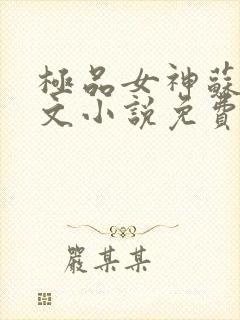 極品女神蘇
文小說免費
嚴某某